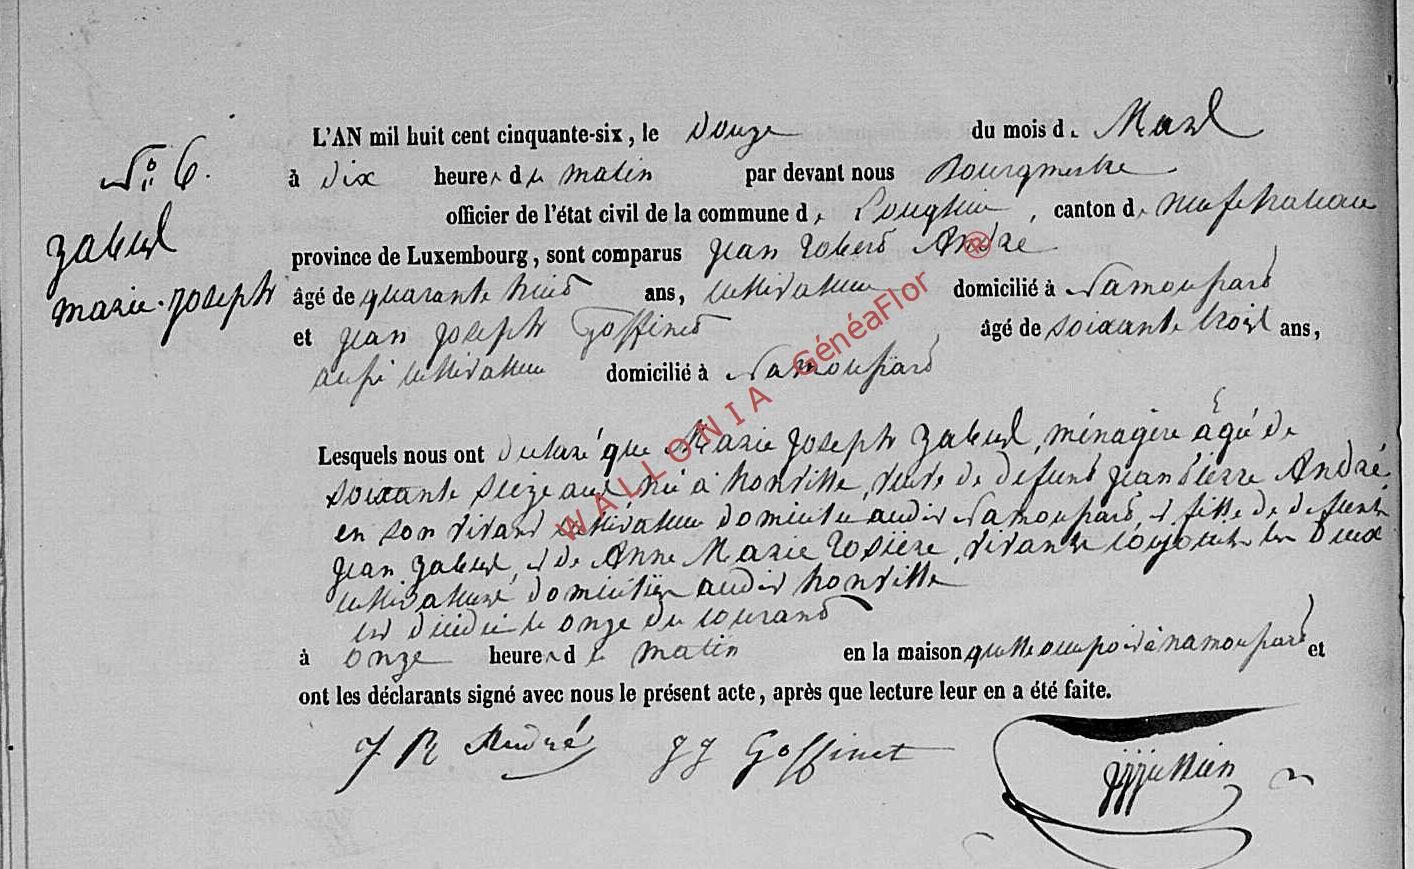 L'AN mil huit cent cinquante-six, le Douze du mois de Mars
N° 6. à dix heures du matin par devant nous Bourgmestre
officier de l'état civil de la commune de Longlier, canton de neufchateau
Zabus province de Luxembourg, sont comparus Jean Robert André
marie-Joseph âgé de quarante huit ans, cultivateur domicilié à Namoussard
et Jean Joseph Goffinet âgé de soixante trois ans,
aussi cultivateur domicilié à Namoussard
Lesquels nous ont déclaré que Marie Joseph Zabus, ménagère agée de
soixante seize ans née à honville, veuve de défunt Jean Pierre André
en son vivant cultivateur domicilié audit Namoussard, et fille de defunts
Jean Zabus, et de Anne Marie Rosière, vivants conjoints les deux
cultivateurs domiciliés audit honville
est décédée le onze du courant
à onze heures du matin en la maison quelle occupoit à namoussard et
ont les déclarants signé avec nous le présent acte, après que lecture leur en a été faite.
J R André JJ Goffinet
WALLONIA GénéaFlor ®